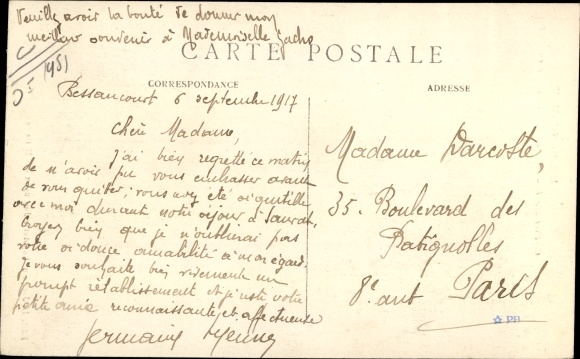 Veuillez avoir la bonté de donner mon
meilleur souvenir à Mademoiselle
CARTE POSTALE
CORRESPONDANCE
ADRESSE
Bessancourt 6 septembre 1917
Chère Madame,
J'ai bien regretté ce matin
de n'avoir pu vous embrasser avant
de vous quitter, vous avez été si gentille
avec moi durant notre séjour à
Croyez bien que je n'oublierai pas
votre si douce amabilité à mon égard.
Je vous souhaite bien vivement un
prompt rétablissement et je reste votre
petite amie reconnaissante et affectueuse
Germaine
Madame Darcoste,
35. Boulevard des
Batignolles
8e arrt Paris